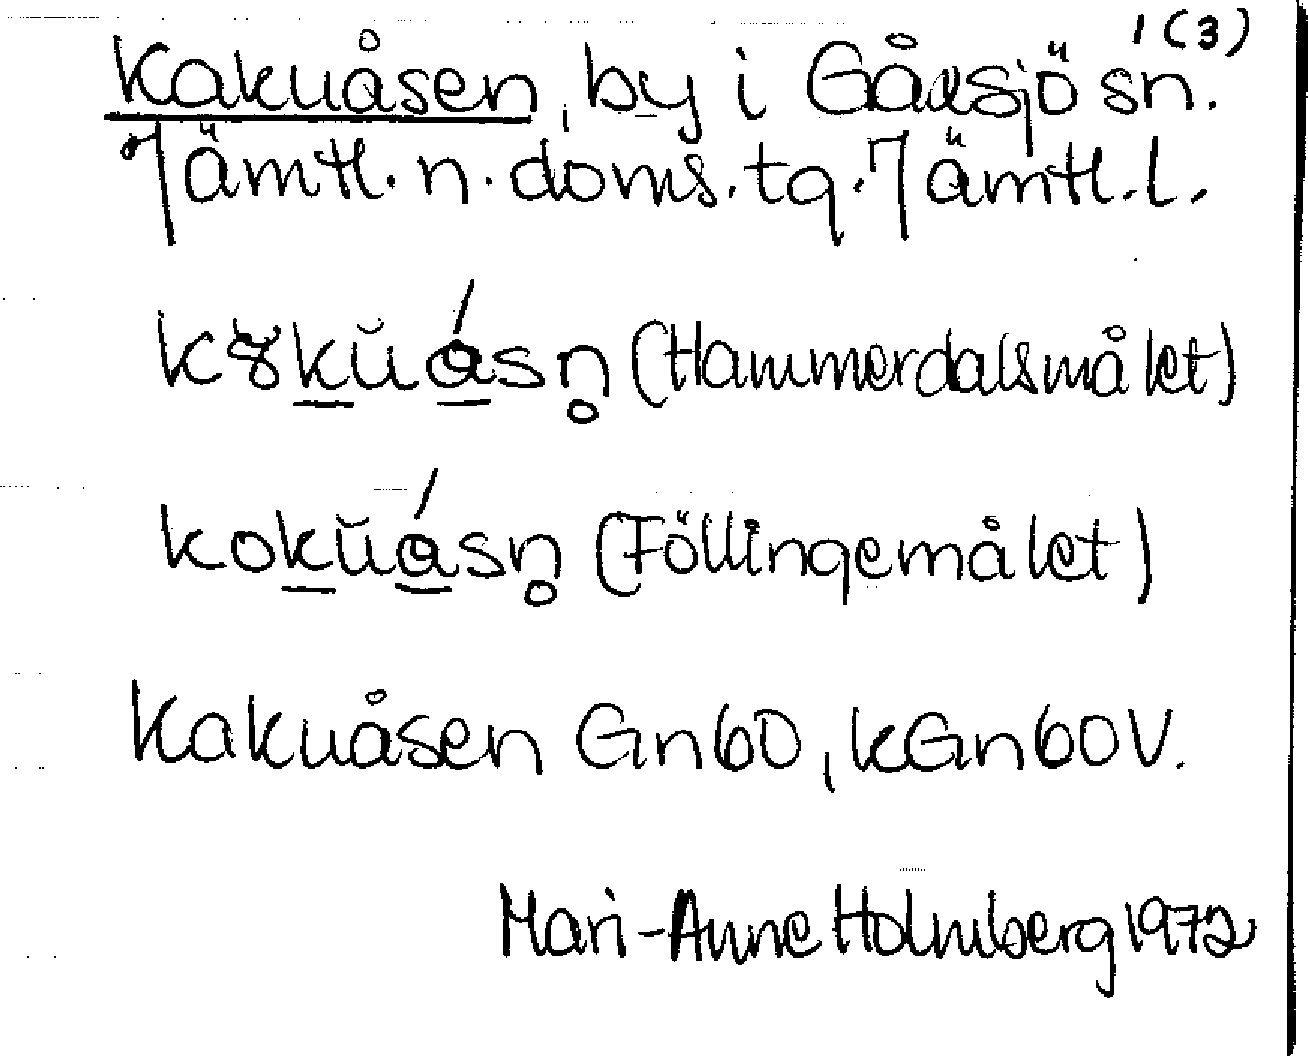 1 (3)
Kakuåsen, by i Gåxsjö sn.
Jämtl. n. doms. tg. Jämtl. l.
(Hammerdalsmålet)
(Föllingemålet)
Kakuåsen Gn60, kGn60V.
Mari-Anne Holmberg 1972